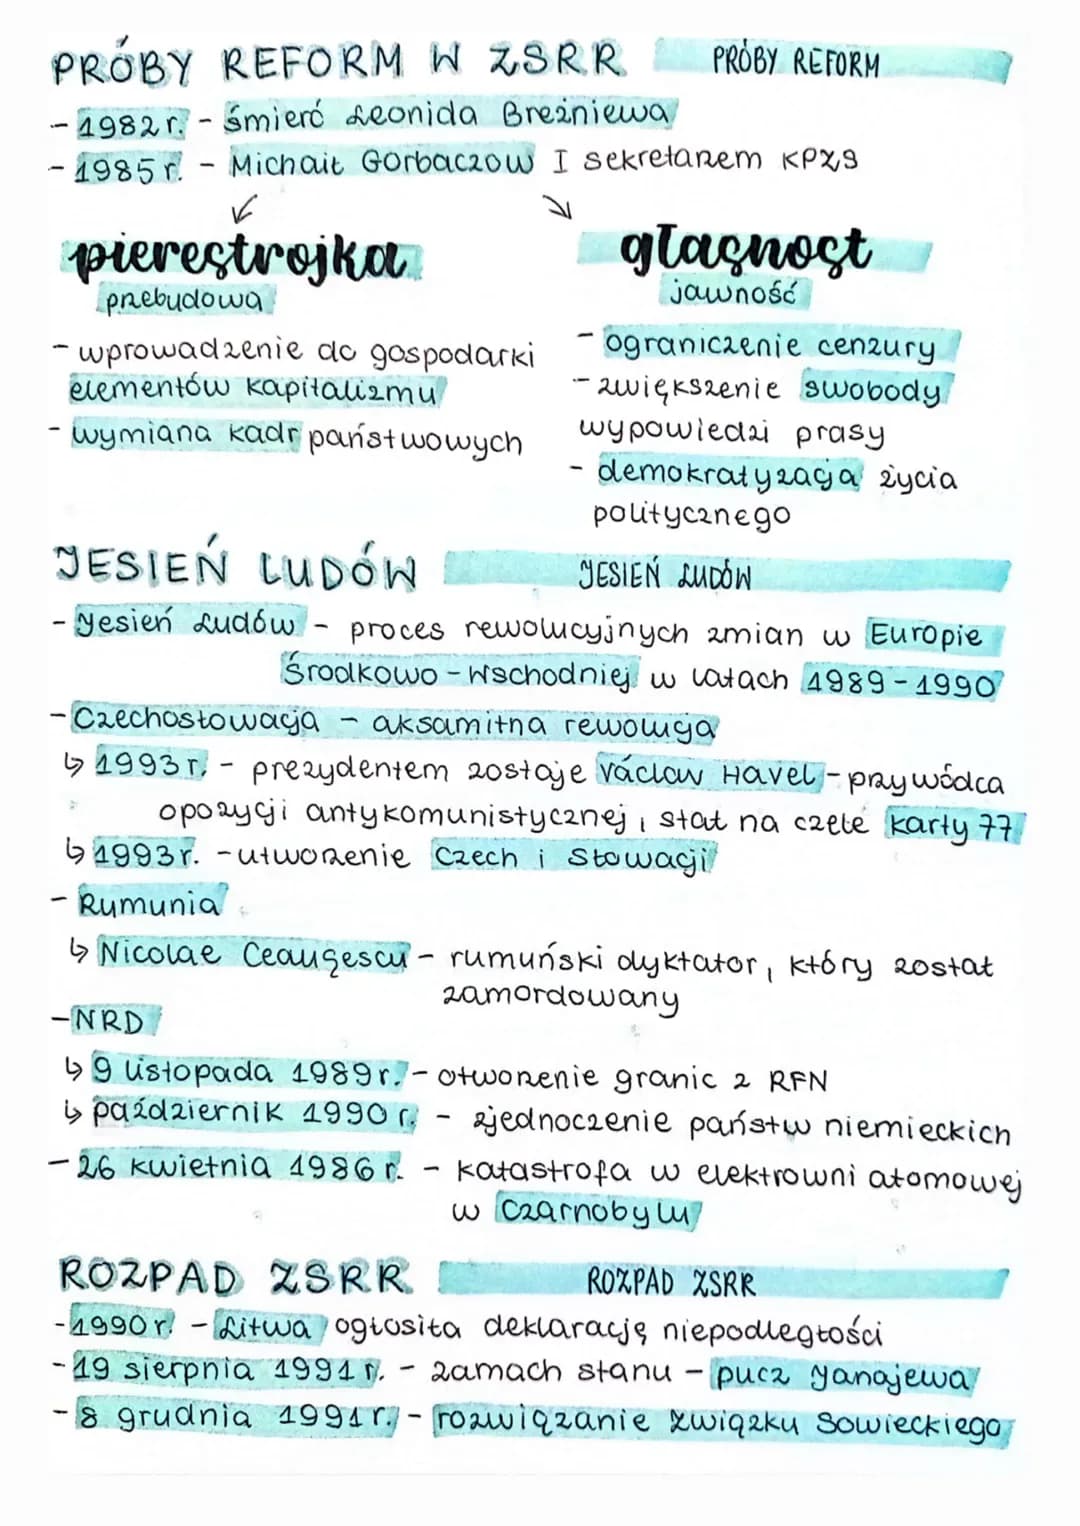 PRÓBY REFORM W ZSRR PRÓBY REFORM
- 1982 r. - śmierć Leonida Breżniewa
- 1985 r. - Michaił Gorbaczow I sekretarzem KPZS
pierestrojka
głasnost
przebudowa
jawność
- wprowadzenie do gospodarki
elementów kapitalizmu
- wymiana kadr państwowych
- ograniczenie cenzury
- zwiększenie swobody
wypowiedzi prasy
- demokratyzacja życia
politycznego
JESIEŃ LUDÓW JESIEŃ LUDÓW
- Jesień Ludów - proces rewolucyjnych zmian w Europie
Środkowo - Wschodniej w latach 1989 - 1990
- Czechosłowacja - aksamitna rewolucja
↳ 1993 r. - prezydentem zostaje Václav Havel - przywódca
opozycji antykomunistycznej, stał na czele karty 77
↳ 1993 r. - utworzenie Czech i Słowacji
- Rumunia
↳ Nicolae Ceaușescu - rumuński dyktator, który został
zamordowany
- NRD
↳ 9 listopada 1989 r. - otworzenie granic z RFN
↳ październik 1990 r. - zjednoczenie państw niemieckich
- 26 kwietnia 1986 r. - katastrofa w elektrowni atomowej
w Czarnobylu
ROZPAD ZSRR ROZPAD ZSRR
- 1990 r. - Litwa ogłosiła deklarację niepodległości
- 19 sierpnia 1991 r. - zamach stanu - pucz Janajewa
- 8 grudnia 1991 r. - rozwiązanie Związku Sowieckiego